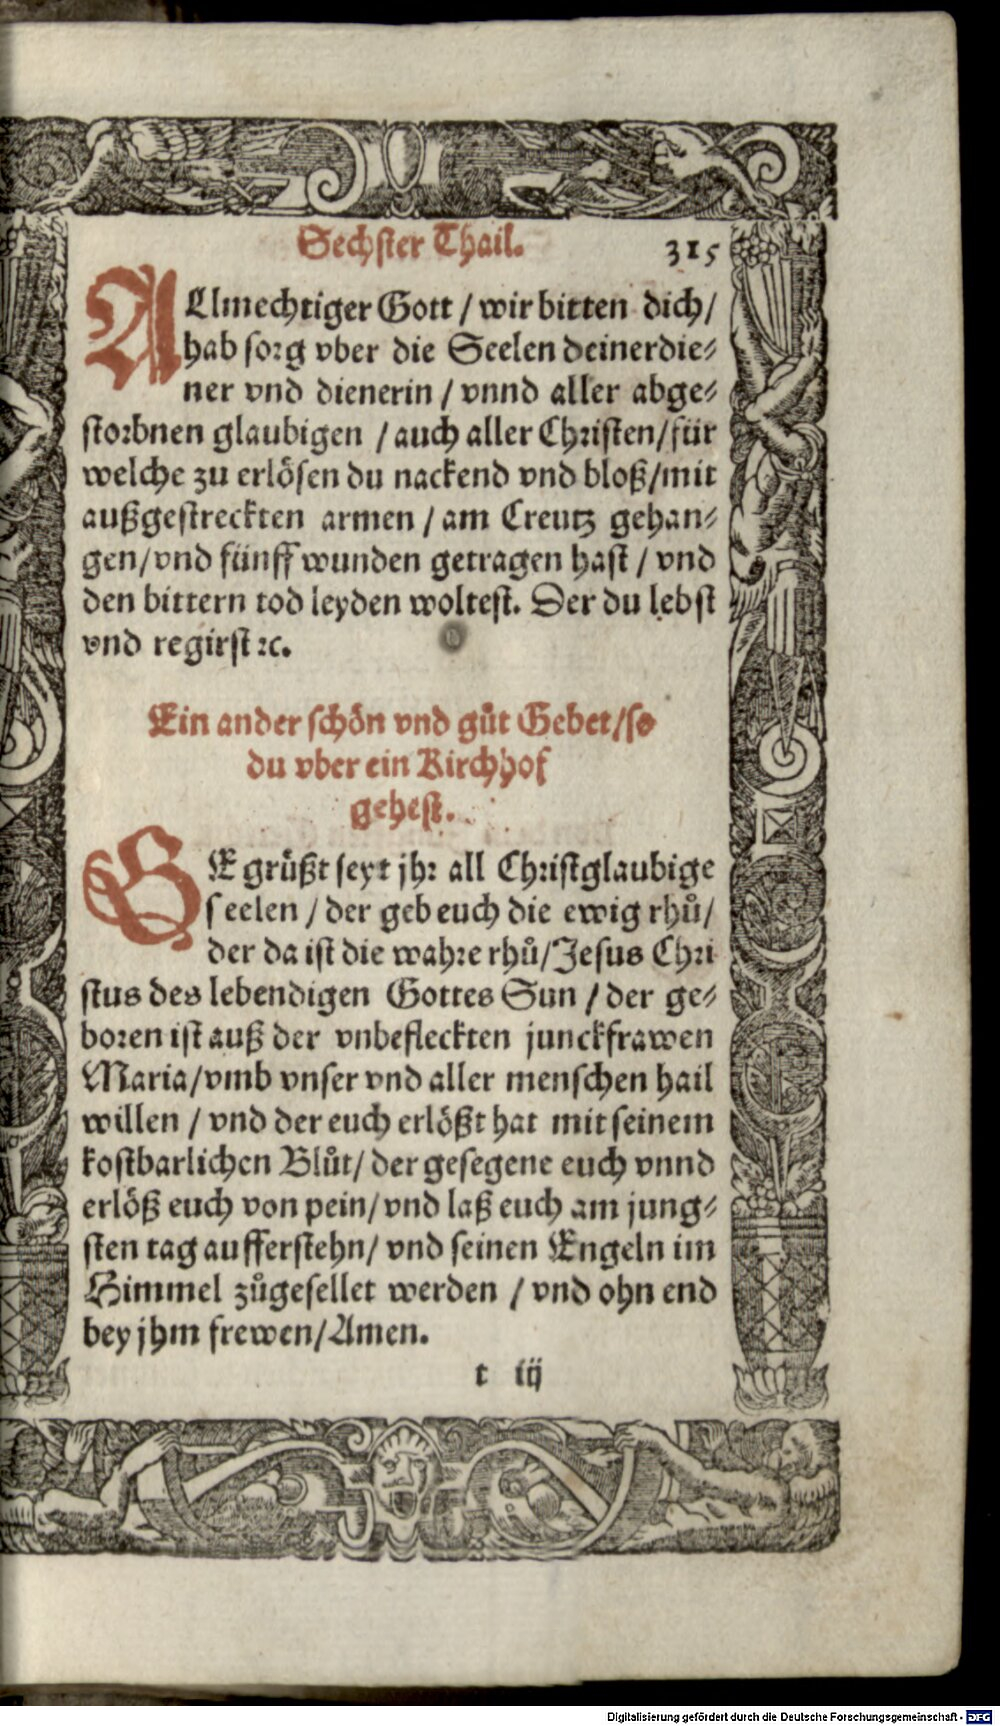 Sechster Thail. 315
ALlmechtiger Gott / wir bitten dich/
hab sorg vber die Seelen deinerdie⸗
ner vnd dienerin / vnnd aller abge⸗
storbnen glaubigen / auch aller Christen/für
welche zu erlösen du nackend vnd bloß/mit
außgestreckten armen / am Creutz gehan⸗
gen/vnd fünff wunden getragen hast / vnd
den bittern tod leyden woltest. Der du lebst
vnd regirst ꝛc.
Ein ander schön vnd gůt Gebet/so
du vber ein Kirchhof
gehest.
GE grüßt seyt jhr all Christglaubige
seelen / der geb euch die ewig rhů/
der da ist die wahre rhů/Jesus Chri
stus des lebendigen Gottes Sun / der ge⸗
boren ist auß der vnbefleckten junckfrawen
Maria/vmb vnser vnd aller menschen hail
willen / vnd der euch erlößt hat mit seinem
kostbarlichen Blůt/ der gesegene euch vnnd
erlöß euch von pein/ vnd laß euch am jung⸗
sten tag aufferstehn/ vnd seinen Engeln im
Himmel zůgesellet werden / vnd ohn end
bey jhm frewen/Amen.
t iij
Digitalisierung gefördert durch die Deutsche Forschungsgemeinschaft - DFG